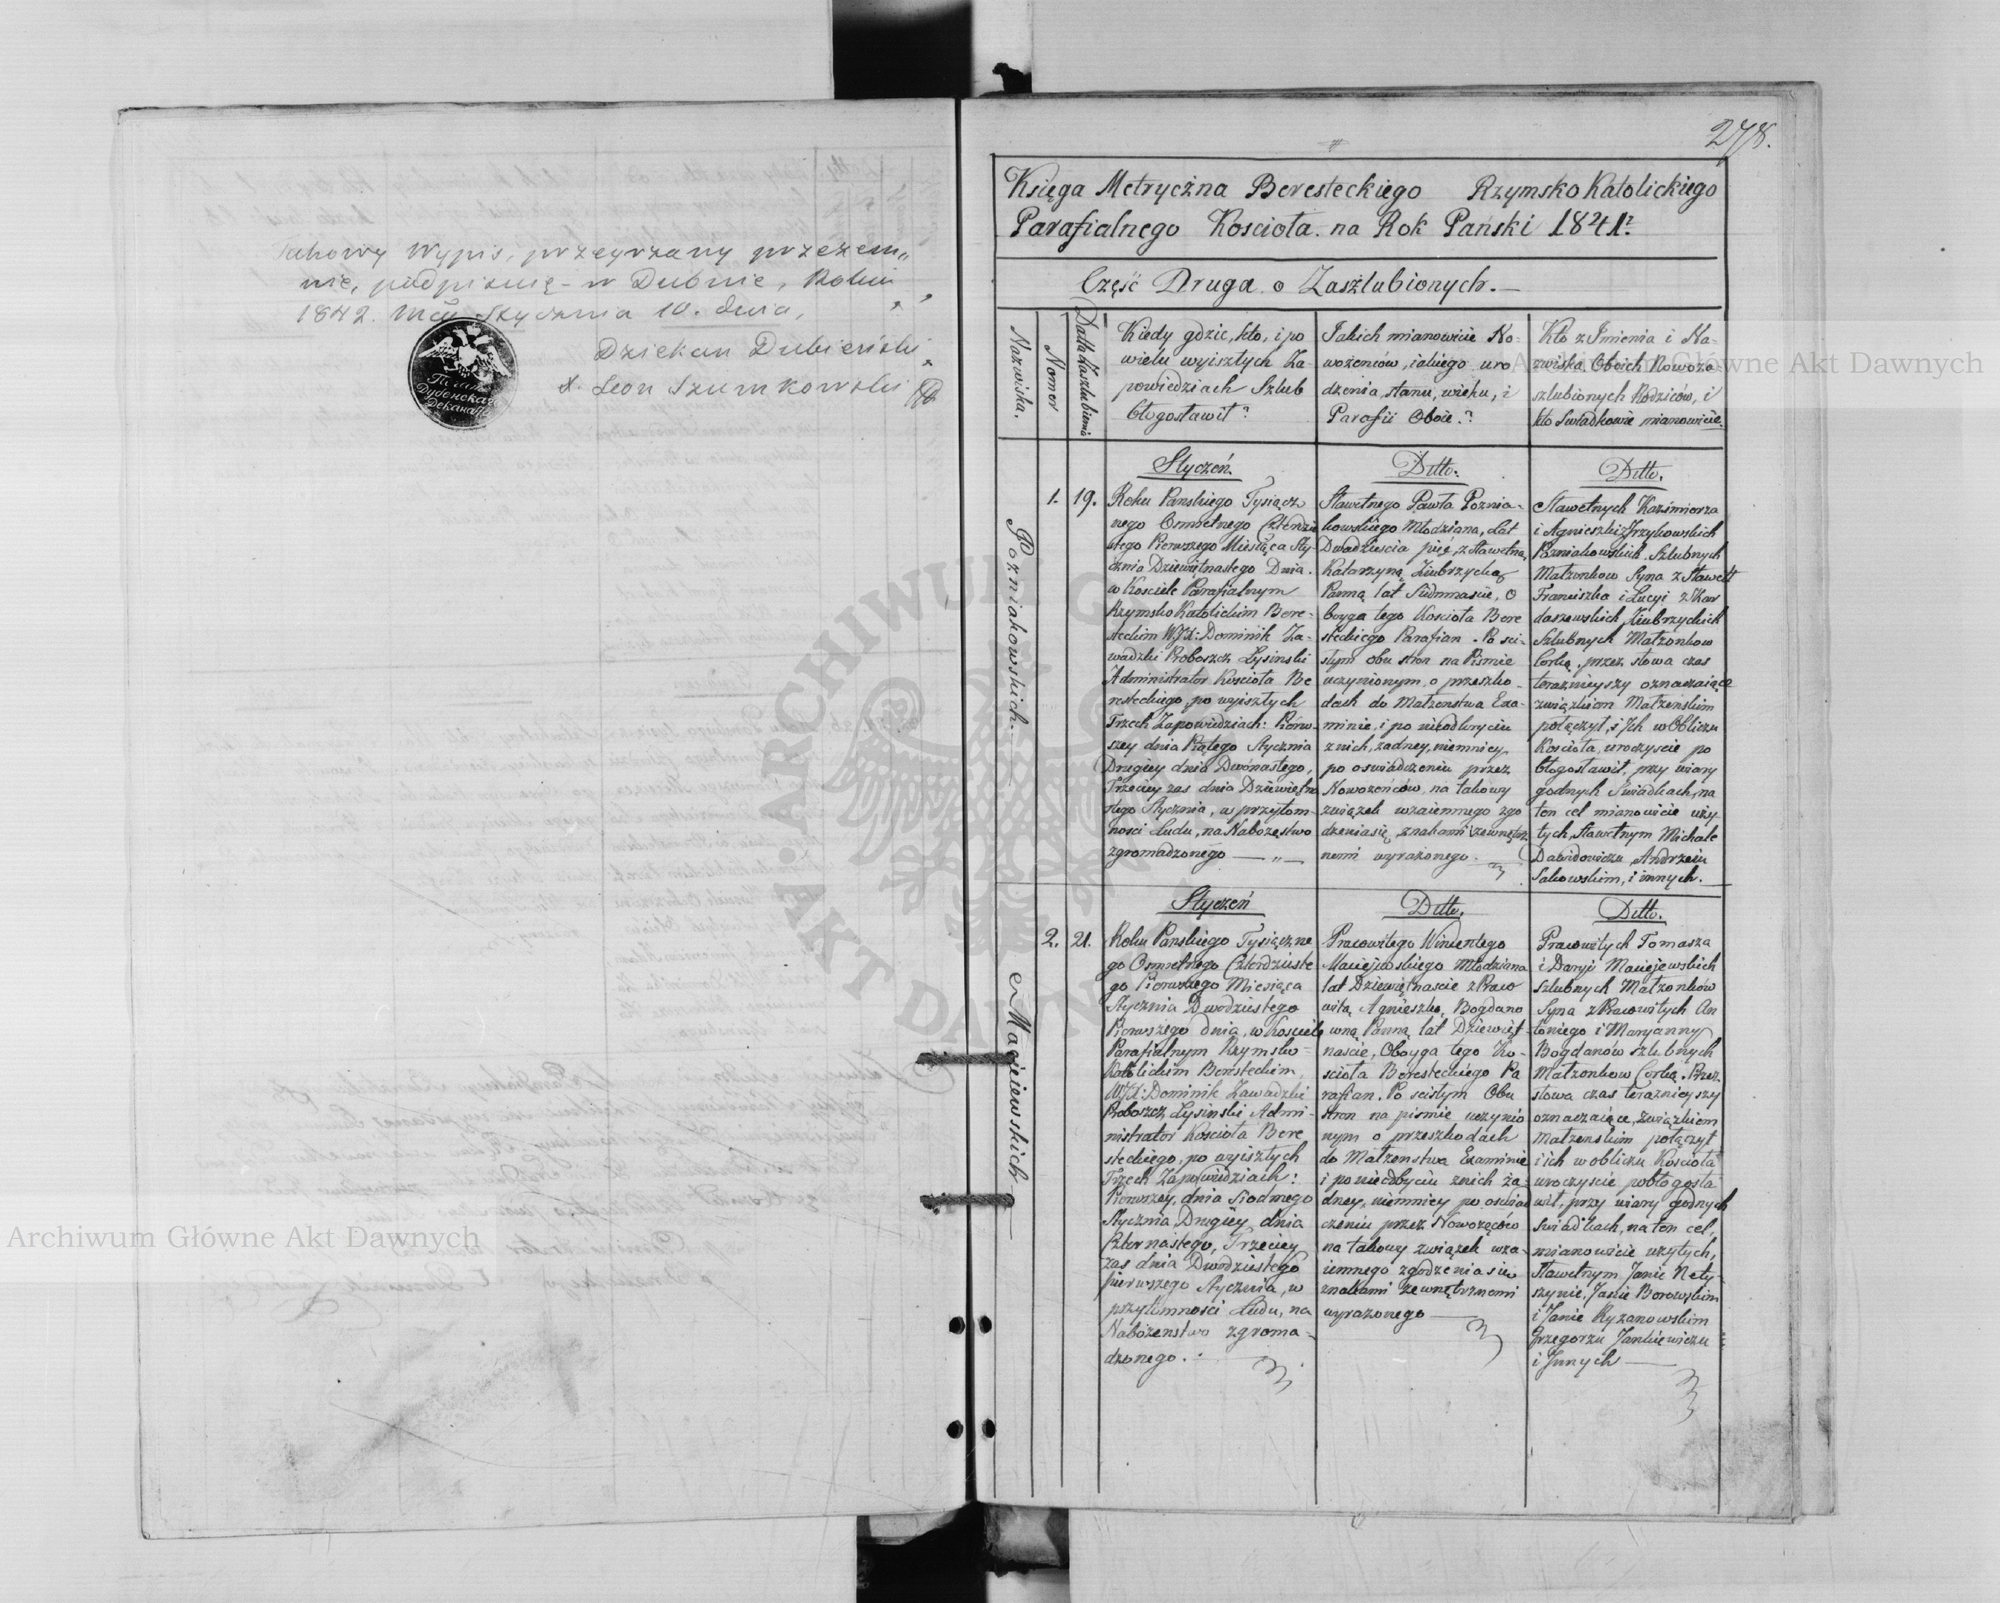 Takowy Wypis, przeyrzany przezem„
nie, podpisuię - w Dubnie, Roku
1842. Mca Stycznia 10. dnia,
Dziekan Dubieński
X. Leon Szumkowski
Печать
Дубенскаго
Деканата
278.
Księga Metryczna Beresteckiego Rzymsko Katolickiego
Parafialnego Koscioła na Rok Pański 1841?
Część Druga o Zaszlubionych.—
Nazwiska.
Nomer
Datta Zaszlubienia
Kiedy gdzie, kto, i po
wielu wyisztych Za-
powiedziach Szlub
błogosławił?
Jakich mianowicie No-
wożencow, iakiego uro
dzenia, stanu, wieku, i
Parafii Oboie.?
Kto z Imienia i Na-
zwiska Oboich Nowoza
szlubionych Rodziców, i
kto Swiadkowie mianowicie.
Pozniakowskich.—
1.
19.
Styczeń.
Roku Panskiego Tysiącz
nego Osmsetnego Czterdzie
stego Pierwszego Miesiąca Sty-
cznia Dziewiętnastego Dnia.
w Kosciele Parafialnym
Rzymsko Katolickim Bere-
steckim WJX: Dominik Za-
wadzki Proboszcz Łysinski
Administrator Kosciota Be
resteckiego, po wyisztych
Trzech Zapowiedziach: Pierw-
szey dnia Piątego Stycznia
Drugiey dnia Dwónastego,
Trzeciey zas dnia Dziewiętna
stego Stycznia, w przytom-
nosci Ludu, na Nabożęstwo
zgromadzonego — „ —
Ditto.
Sławetnego Pawła Poznia-
kowskiego Młodziana, Lat
Dwadziescia pięć, z Sławetną
Katarzyną Ziubrzycką
Panną lat Siedmnascie, O
boyga tego Kosciota Bere
steckiego Parafian. Po sci-
słym obu stron na Pismie
uczynionym, o przeszko-
dach do Małżenstwa Exa-
minie, i po nieodkryciu
znich, żadney, niemniey,
po oswiadczeniu przez
Nowożencow, na takowy
związek wzaiemnego zgo
dzenia się, znakami zewnętrz
nemi wyrażonego.
Ditto.
Sławetnych Kazimierza
i Agnieszki Jrzykowskich
Pozniakowskich Szlubnych
Małżonkow Syna z Sławett
Franciszka i Łucyi z Kar
daszewskich Ziubrzyckich
Szlubnych Małżonkow
Corką, przez słowa czas
teraznieyszy oznaczaiące
związkiem Małżenskim
połączył, i Jch w Obliczu
Kosciota, uroczyscie po
błogosławił, przy wiary
godnych Swiadkach, na
ten cel mianowicie uży-
tych, Sławetnym Michale
Dawidowiczu, Andrzeiu
Sakowskim, i innych.
Maciejewskich
2.
21.
Styczeń
Roku Panskiego Tysiączne
go Osmsetnego Czterdzieste
go Pierwszego Miesiąca
Stycznia Dwódziestego
Pierwszego dnia, w Kosciele
Parafialnym Rzymsko-
Katolickim Beresteckim,
WJX: Dominik Zawadzki
Proboszcz Łysinski Admi-
nistrator Kosciota Bere
steckiego, po wyisztych
Trzech Zapowiedziach:
Pierwszey, dnia Siodmego
Stycznia, Drugiey dnia
Czternastego, Trzeciey
zas dnia Dwódziestego
pierwszego Stycznia, w
przytomnosci Ludu, na
Nabożenstwo zgroma-
dzonego.
Ditto.
Pracowitego Wincentego
Maciejewskiego Młodziana
lat Dziewiętnascie z Praco
witą Agnieszką, Bogdano
wną Panną lat Dziewięt-
nascie, Oboyga tego Ko-
sciota Beresteckiego Pa
rafian. Po scisłym Obu
stron na pismie uczynio
nym o przeszkodach
do Małżenstwa Examinie
i po nieodkryciu znich ża-
dney, niemniey po oswiad
czeniu przez Nowożęców
na takowy związek wza-
iemnego zgodzenia się
znakami zewnętrznemi
wyrażonego
Ditto.
Pracowitych Tomasza
i Daryi Maciejewskich
Szlubnych Małżonków
Syna z Pracowitych An
toniego i Maryanny
Bogdanów szlubnych
Małżonkow Corką. Przez
słowa czas teraznieyszy
oznaczaiące, związkiem
Małżenskim połączył
i ich w obliczu Kosciota
uroczyscie pobłogosła
wił, przy wiary godnych
Swiadkach, na ten cel,
mianowicie użytych,
Sławetnym Janie Nety-
szynie, Janie Borowskim
i Janie Ryżanowskim
Grzegorzu Jankiewiczu
i Jnnych
Archiwum Główne Akt Dawnych
Archiwum Główne Akt Dawnych